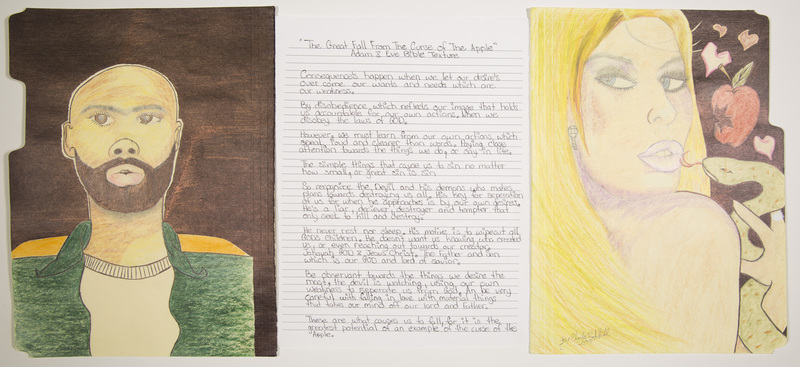 "The Great Fall From The Curse of The Apple"
Adam & Eve Bible Texture
Consequences happen when we let our desires
over come our wants and needs which are
our weakness.
By disobedience, which reflects our image that holds
us accountable for our own actions. When we
disobey the laws of GOD.
However, we must learn from our own actions, which
speak loud and clearer than words. Paying close
attention towards the things we do, or say in life.
The simple things that cause us to sin no matter
how small, or great sin is sin
So recognize the Devil and his demons who makes
plans towards destroying us all. His key for seperation
of us for when he approaches is by our own desires.
He's a liar, deciever, destroyer and tempter that
only seek to kill and destroy.
He never rest nor sleep. His motive is to wipeout all
GODs children. He doesn't want us knowing who created
us, or even reaching out towards our creator,
GOD & Jesus Christ. The father and son
which is our GOD and lord of savior.
Be observant towards the things we desire the
most, the devil is watching, using our own
weakness to seperate us from God. An be very
careful with falling in love with material things
that take our mind off our lord and father.
These are what causes us to fall, for it is the
greatest potential of an example of the curse of the
"Apple.
By: